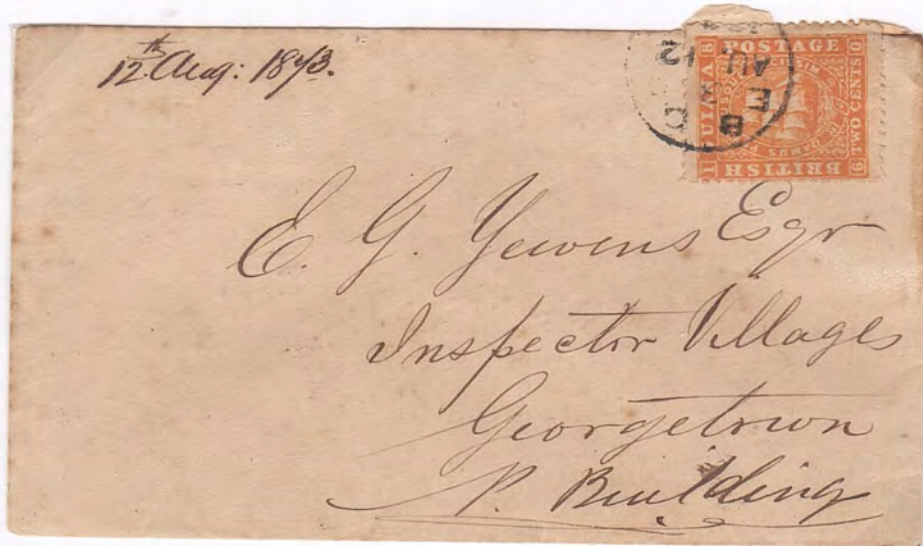 12th Aug: 1873.
POSTAGE
BRITISH
UIANA
TWO CENTS
1 8 6 0
DAMUS
AU 12
B
E
C
E. G. Yewens Esqr
Inspector Villages
Georgetown
P. Building